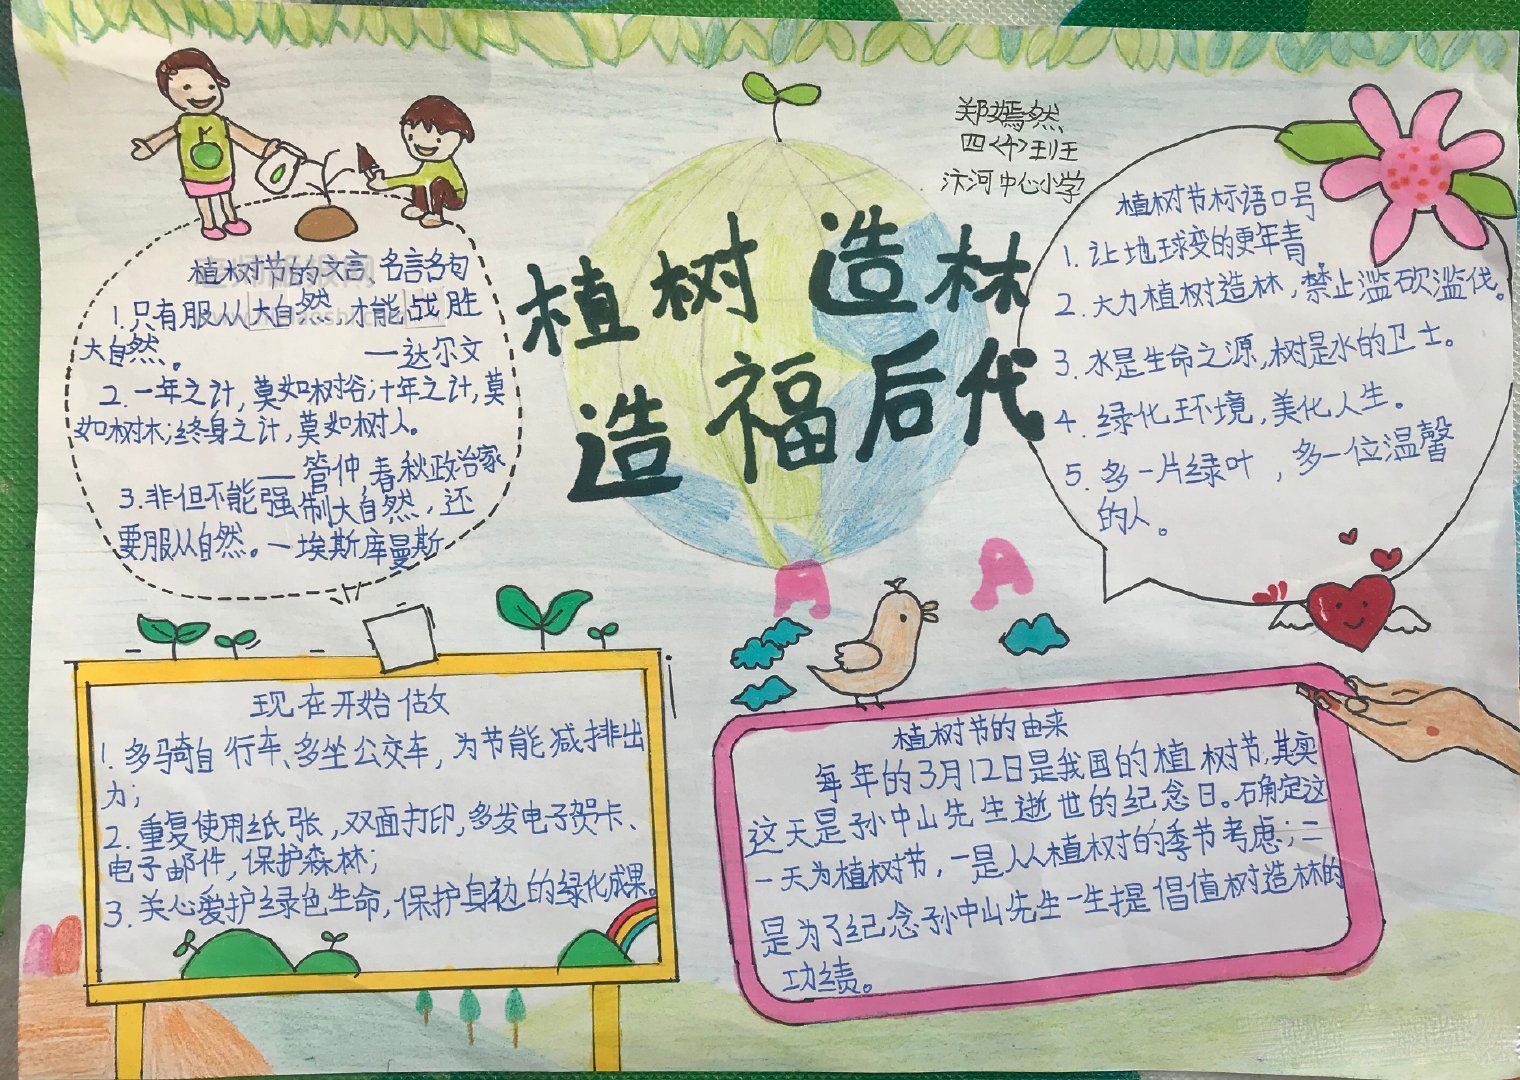 植树造林
造福后代
郑嫣然
四<4>班
汴河中心小学
植树节的文言、名言名句
1.只有服从大自然,才能战胜
大自然。
—达尔文
2.一年之计,莫如树谷;十年之计,莫
如树木;终身之计,莫如树人。
—管仲,春秋政治家
3.非但不能强制大自然,还
要服从自然。—埃斯库曼斯
植树节标语口号
1.让地球变的更年青。
2.大力植树造林,禁止滥砍滥伐。
3.水是生命之源,树是水的卫士。
4.绿化环境,美化人生。
5.多一片绿叶,多一位温馨
的人。
现在开始做
1.多骑自行车、多坐公交车,为节能减排出
力;
2.重复使用纸张,双面打印,多发电子贺卡、
电子邮件,保护森林;
3.关心爱护绿色生命,保护身边的绿化成果。
植树节的由来
每年的3月12日是我国的植树节,其实
这天是孙中山先生逝世的纪念日。确定这
一天为植树节,一是从植树的季节考虑;二
是为了纪念孙中山先生一生提倡植树造林的
功绩。